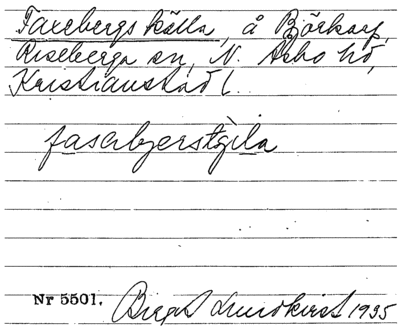 Faxebergs källa, å Björkarp,
Riseberga sn, N. Åsbo hd,
Kristianstad l.
fasabjerstçila
Nr 5501.
Birgit Lundkvist 1935